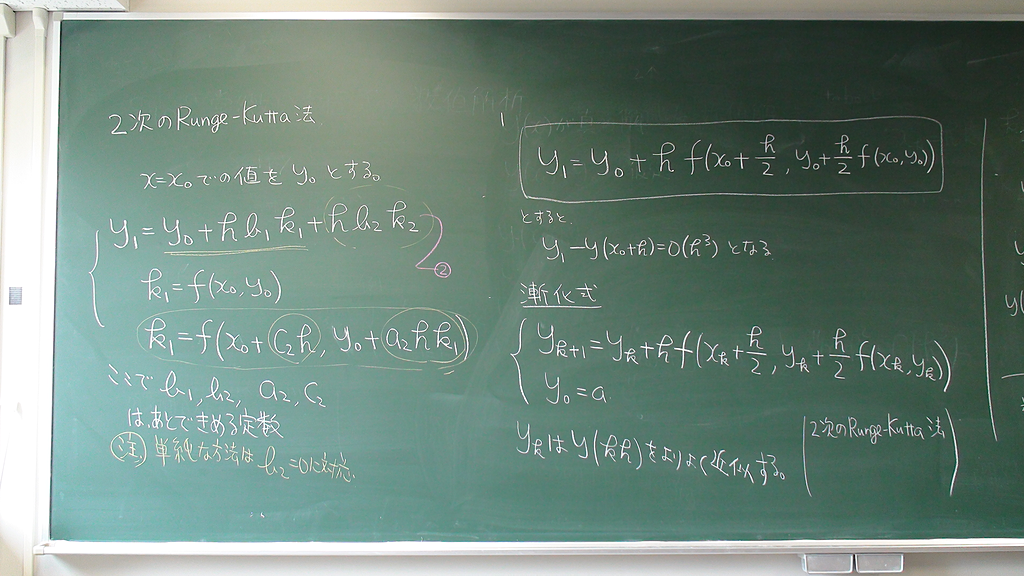 2次のRunge-Kutta法
x=x₀での値をy₀とする。
y₁=y₀+hb₁k₁+hb₂k₂
②
k₁=f(x₀,y₀)
k₁=f(x₀+c₂h, y₀+a₂hk₁)
ここで b₁,b₂, a₂,c₂
は、あとできめる定数
注 単純な方法は b₂=0に対応.
y₁=y₀+h f(x₀+h/2, y₀+h/2 f(x₀,y₀))
とすると、
y₁-y(x₀+h)=O(h³) となる
漸化式
yₖ₊₁=yₖ+hf(xₖ+h/2, yₖ+h/2 f(xₖ,yₖ))
y₀=a
yₖは y(kh)をよりよく近似する。
(2次のRunge-Kutta法)